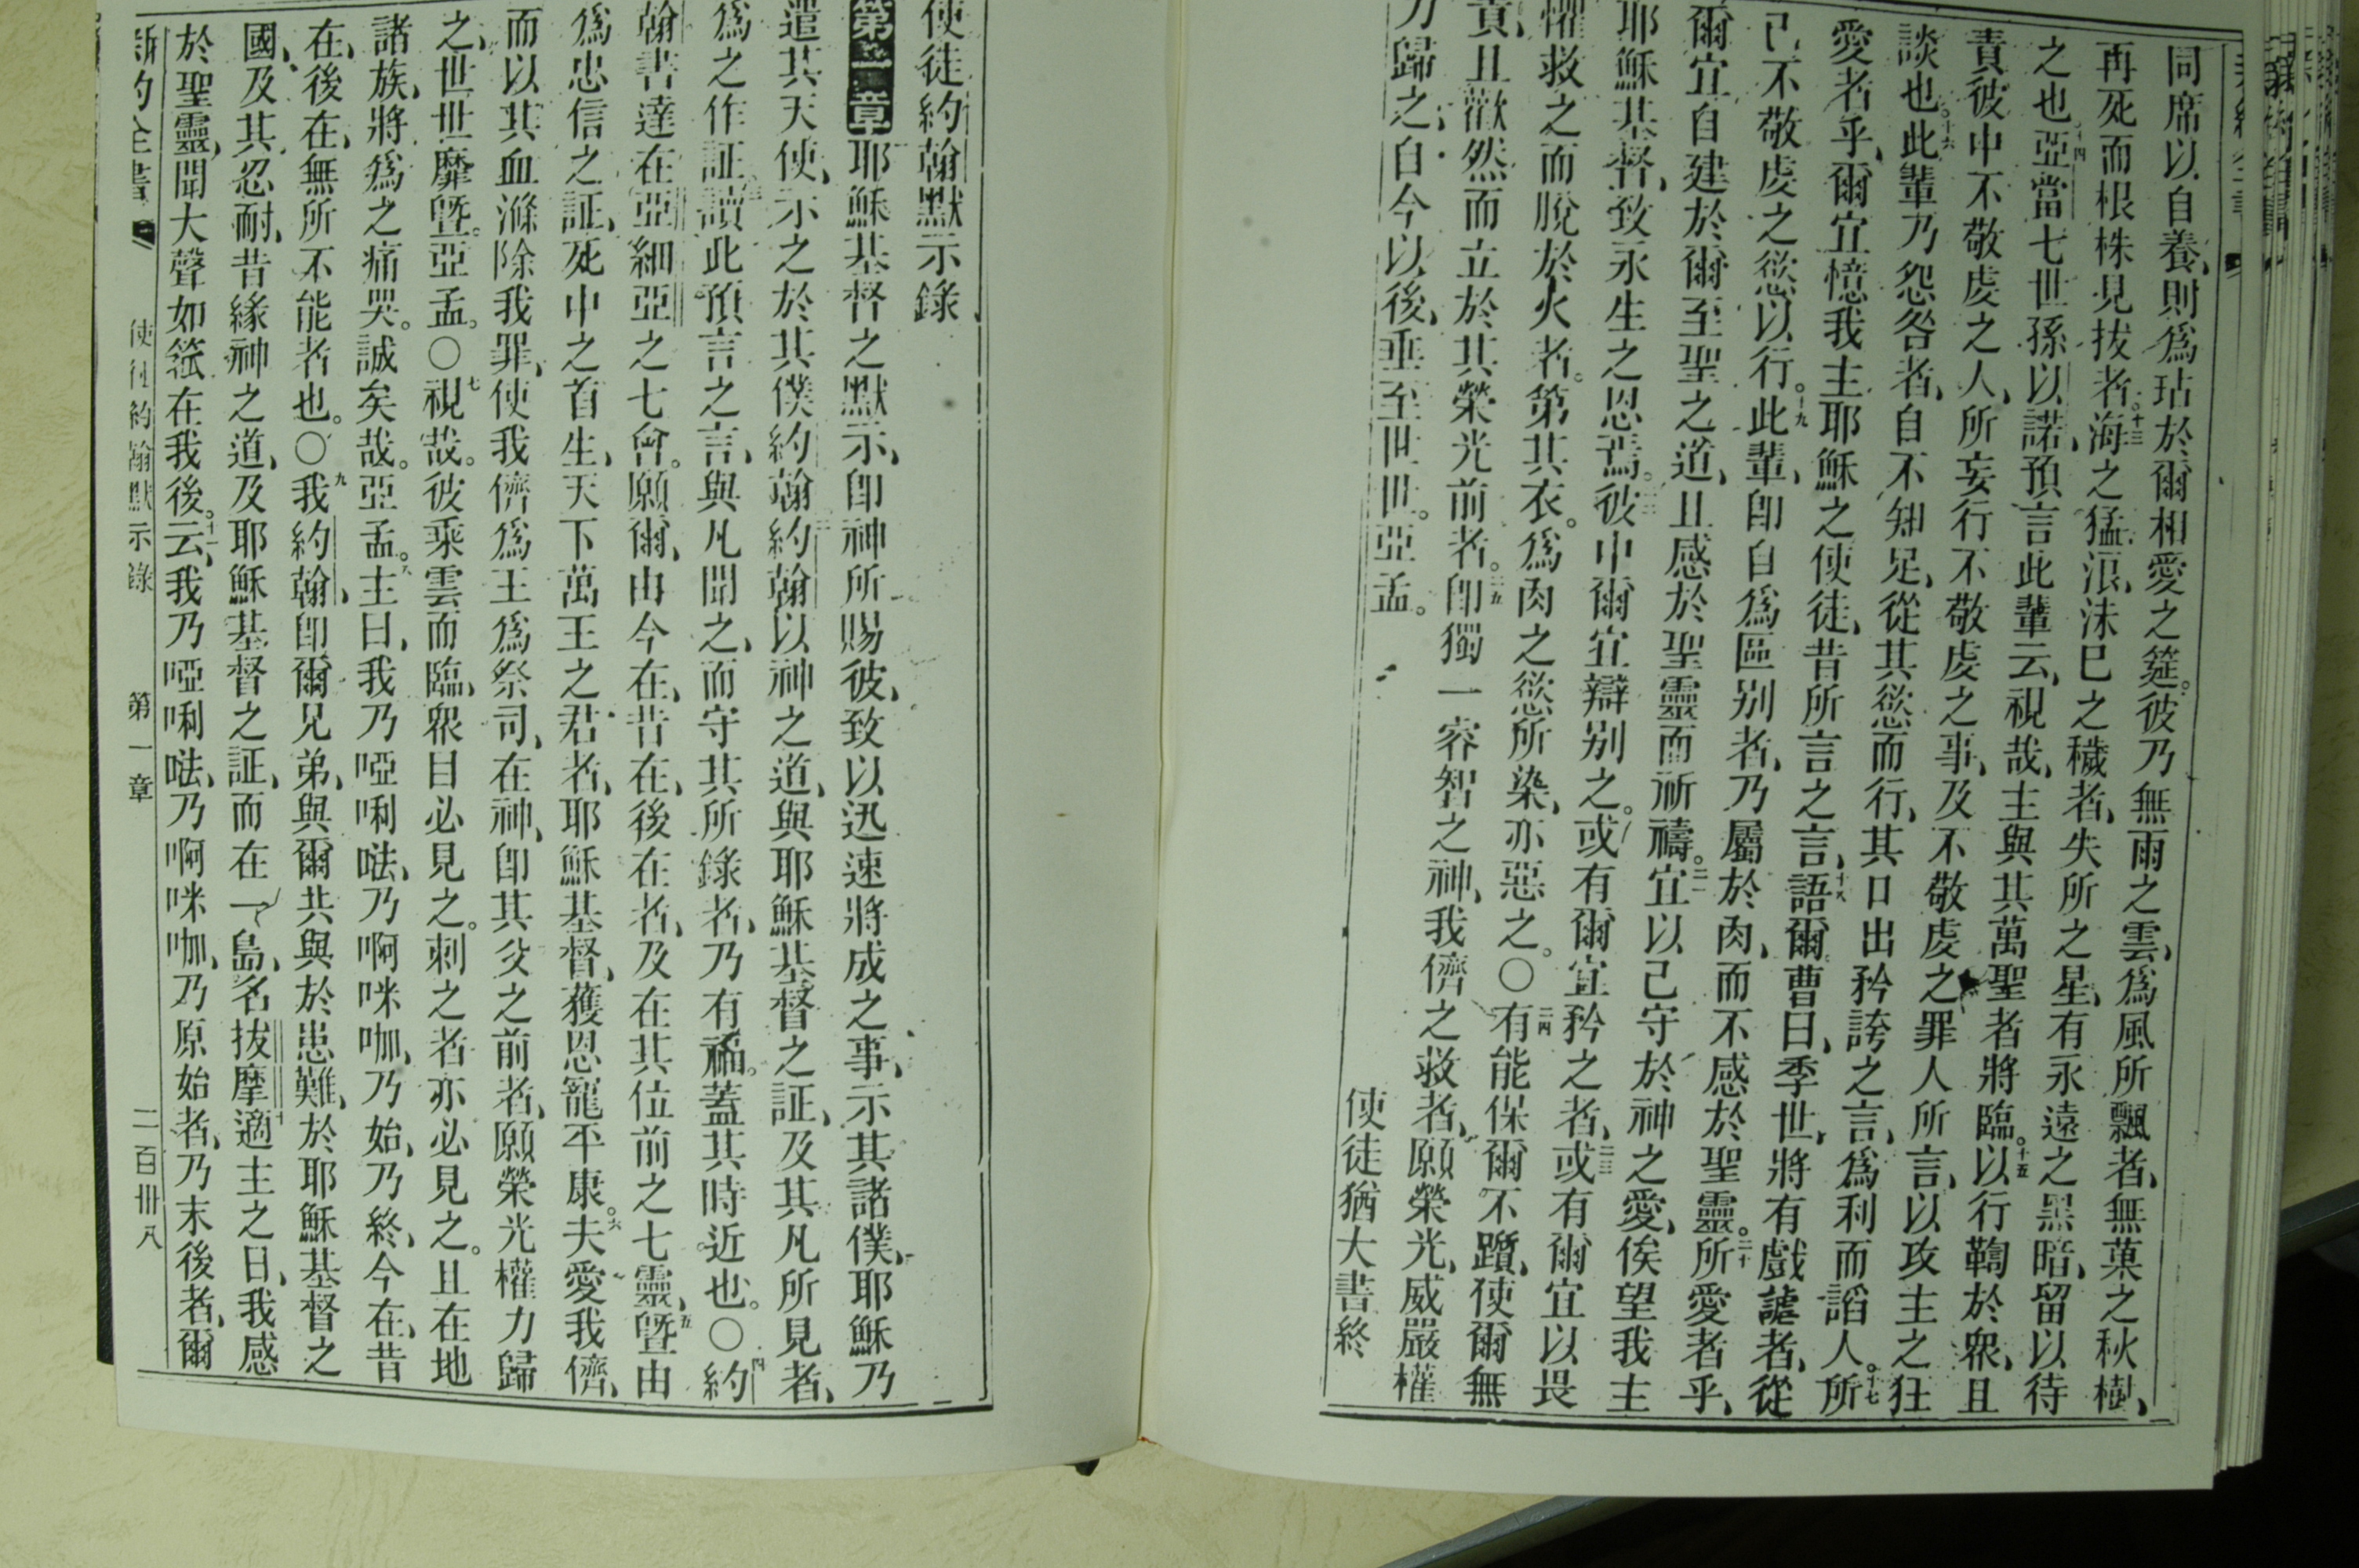 同席以自養、則爲玷於爾相愛之筵。彼乃無雨之雲、爲風所飄者、無菓之秋樹、
再死而根株見拔者。十三海之猛浪、沫己之穢者、失所之星、有永遠之黑暗、留以待
之也。十四亞當七世孫以諾、預言此輩云、視哉、主與其萬聖者將臨。十五以行鞫於衆、且
責彼中不敬虔之人、所妄行不敬虔之事、及不敬虔之罪人所言、以攻主之狂
談也。十六此輩乃怨咎者、自不知足、從其慾而行、其口出矜誇之言、爲利而謟人。十七所
愛者乎、爾宜憶我主耶穌之使徒、昔所言之言、十八語爾曹曰、季世、將有戲謔者、從
己不敬虔之慾以行。十九此輩、卽自爲區别者、乃屬於肉、而不感於聖靈。二十所愛者乎、
爾宜自建於爾至聖之道、且感於聖靈而祈禱。二一宜以己守於神之愛、俟望我主
耶穌基督、致永生之恩焉。二二彼中爾宜辯别之。或有爾宜矜之者、二三或有爾宜以畏
懼救之而脫於火者。第其衣。爲肉之慾所染、亦惡之。〇二四有能保爾不躓、使爾無
責、且歡然而立於其榮光前者。二五卽獨一睿智之神、我儕之救者、願榮光、威嚴權
力歸之、自今以後、垂至世世。亞孟。
使徒猶大書終
使徒約翰默示錄
第一章耶穌基督之默示、卽神所賜彼、致以迅速將成之事、示其諸僕、耶穌乃
遣其天使、示之於其僕約翰二約翰以神之道、與耶穌基督之証、及其凡所見者、
爲之作証。三讀此預言之言、與凡聞之、而守其所錄者、乃有福。蓋其時近也。〇四約
翰書達在亞細亞之七會。願爾、由今在、昔在、後在者、及在其位前之七靈、五曁由
爲忠信之証、死中之首生、天下萬王之君者、耶穌基督、獲恩寵平康。六夫愛我儕、
而以其血滌除我罪、使我儕爲王爲祭司、在神、卽其父之前者、願榮光權力歸
之、世世靡曁。亞孟。〇七視哉。彼乘雲而臨、衆目必見之。刺之者亦必見之。且在地
諸族、將爲之痛哭。誠矣哉。亞孟。八主曰、我乃啞唎㗚、乃啊咪咖、乃始、乃終、今在、昔
在、後在、無所不能者也。〇九我約翰、卽爾兄弟、與爾共與於患難、於耶穌基督之
國、及其忍耐、昔緣神之道、及耶穌基督之証、而在一島、名拔摩十適主之日、我感
於聖靈、聞大聲如篍在我後。十一云、我乃啞唎㗚、乃啊咪咖、乃原始者、乃末後者、爾
新約全書
使徒約翰默示錄
第一章
二百卅八